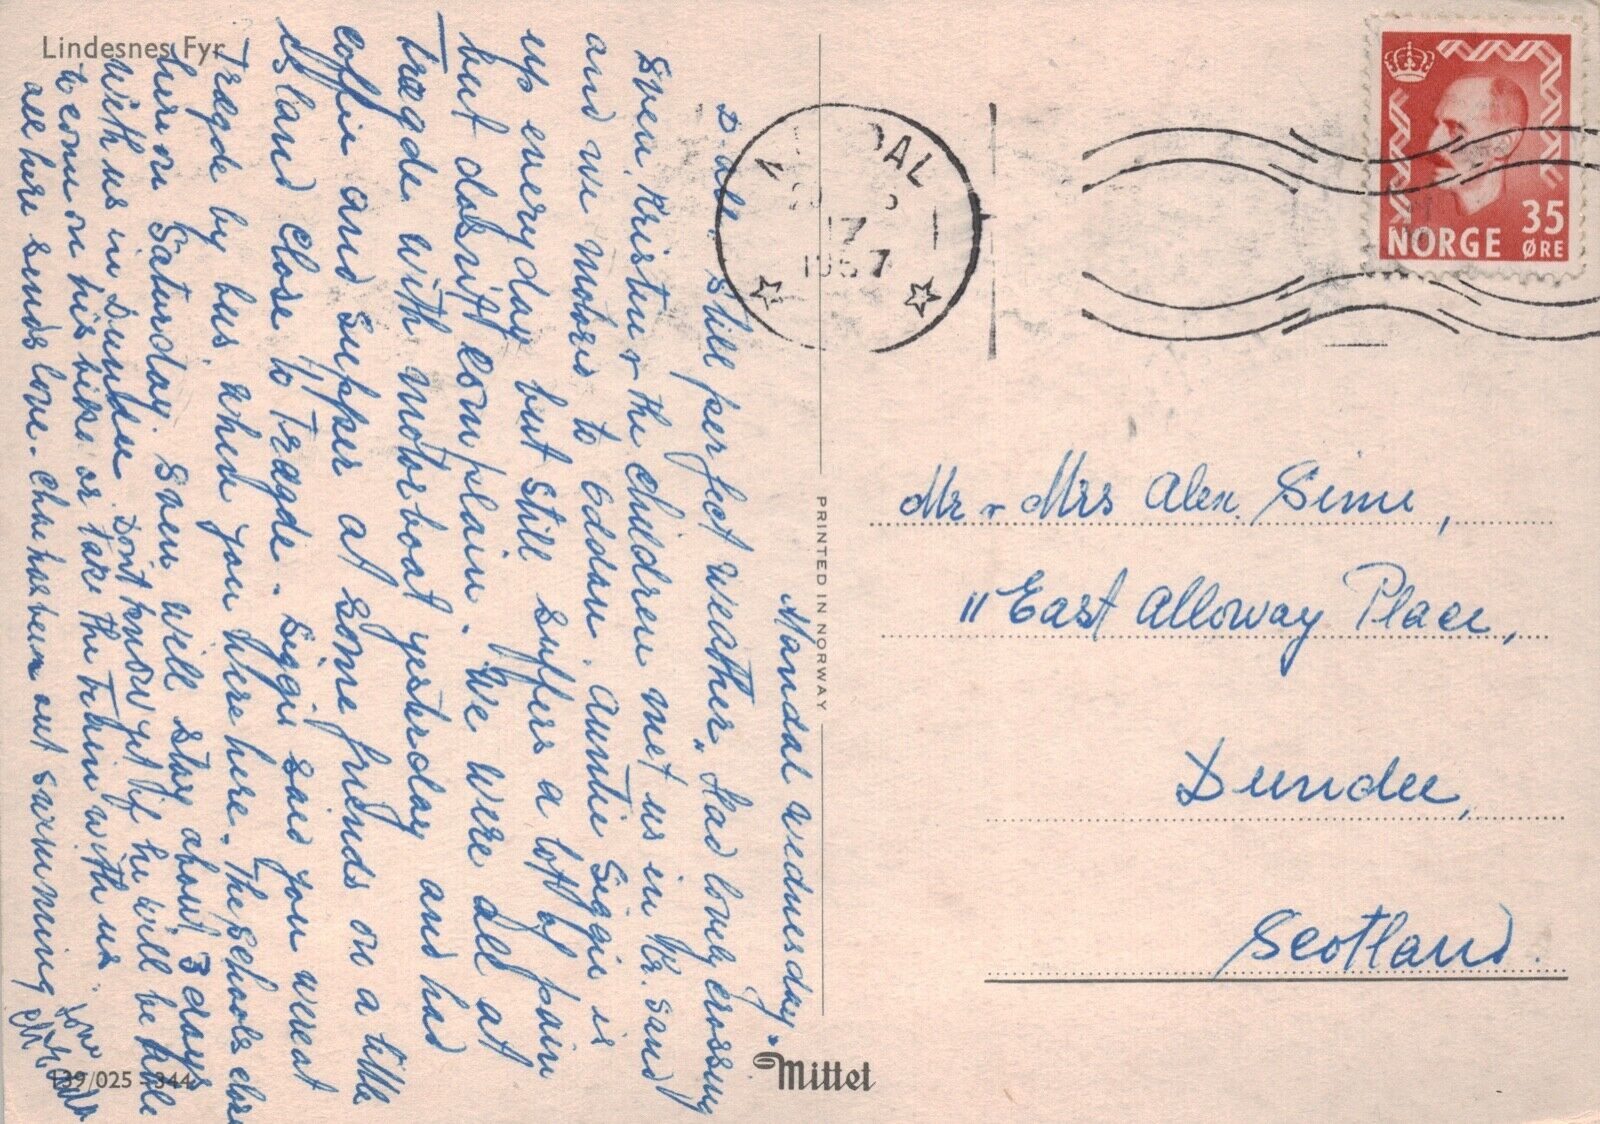 Lindesnes Fyr
Mandal Wednesday.
D all. Still perfect weather. Had lovely crossing
Sven, Kristin + the children met us in Kr. Sand
and we motors to Oddan. Auntie Siggie is
up every day but still suffers a lot of pain
but dosnit complain. We were all at
Trægde with motorboat yesterday and had
coffie and supper at some friends on a little
island close to Trægde. Siggie said you were at
Trægde by bus when you were here. The schools close
here on Saturday. Sven will stay about 3 days
with us in Dundee. Don't know yet if he will be able
to come on his bike or take the train with us.
all here sends love. has been out swimming
Love
PRINTED IN NORWAY
Mittet
139/025 - 344
DAL
17
1957
NORGE 35 ØRE
Mr + Mrs Alex. Sime,
11 East Alloway Place,
Dundee,
Scotland.